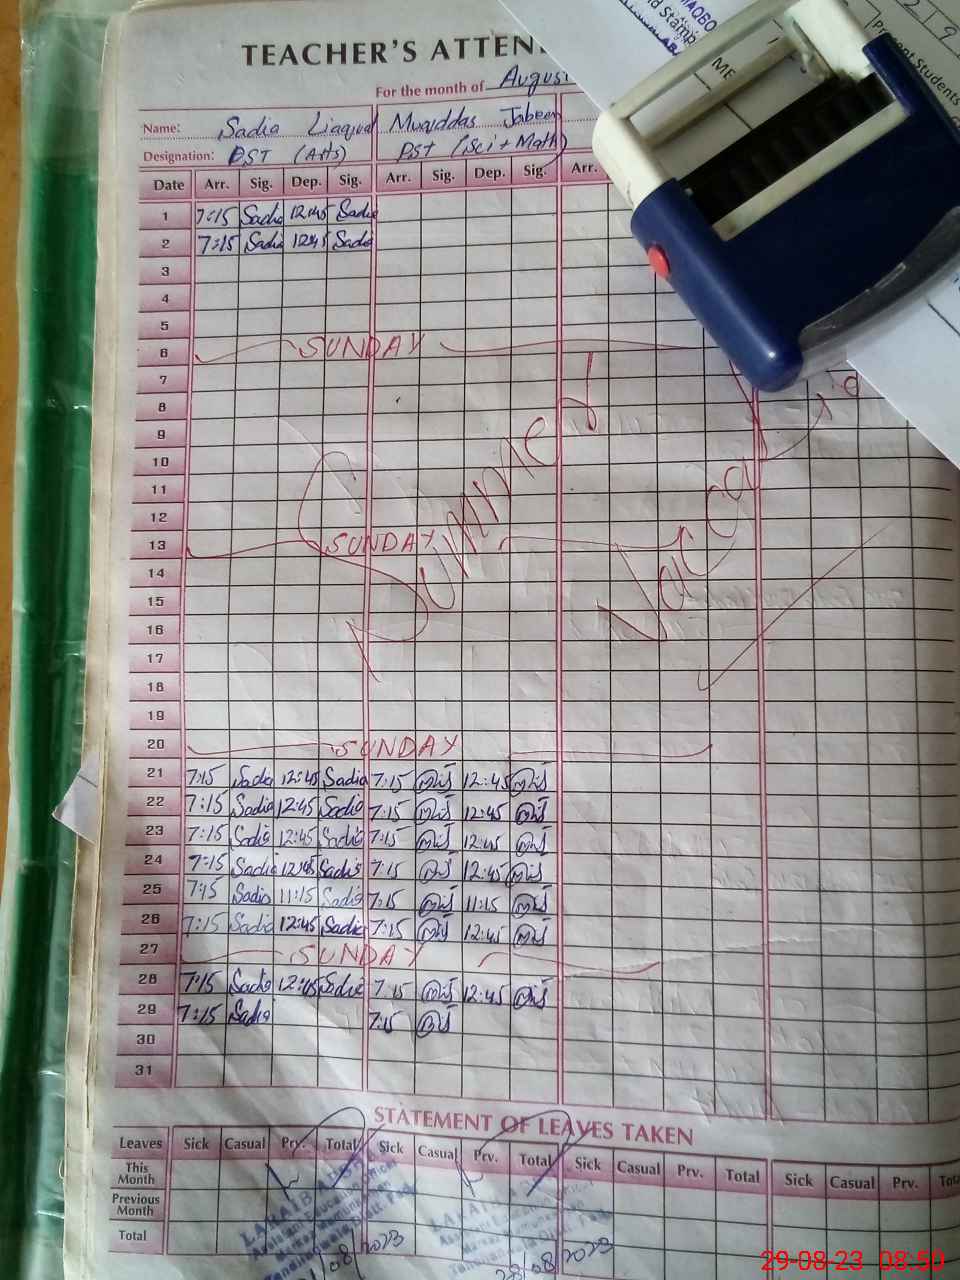 TEACHER'S ATTEN
For the month of August
Name: Sadia Liaquat Muqiddas Jabeen
Designation: PST (Arts) PST (Sci + Math)
Date Arr. Sig. Dep. Sig. Arr. Sig. Dep. Sig. Arr.
1 7:15 Sadia 12:45 Sadia
2 7:15 Sadia 12:45 Sadia
3
4
5
6 SUNDAY
7
8
9
10
11
12
13 SUNDAY
Summer Vacation
14
15
16
17
18
19
20 SUNDAY
21 7:15 Sadia 12:45 Sadia 7:15 12:45
22 7:15 Sadia 12:45 Sadia 7:15 12:45
23 7:15 Sadia 12:45 Sadia 7:15 12:45
24 7:15 Sadia 12:45 Sadia 7:15 12:45
25 7:15 Sadia 11:15 Sadia 7:15 11:15
26 7:15 Sadia 12:45 Sadia 7:15 12:45
27 SUNDAY
28 7:15 Sadia 12:45 Sadia 7:15 12:45
29 7:15 Sadia 7:15
30
31
STATEMENT OF LEAVES TAKEN
Leaves Sick Casual Prv. Total Sick Casual Prv. Total Sick Casual Prv. Total Sick Casual Prv. Tot
This Month
Previous Month
Total
Assistant Education Officer
08/2023 28/08/2023
MAQBO
d Stamp
ME
Present Students
29-08-23 08:50